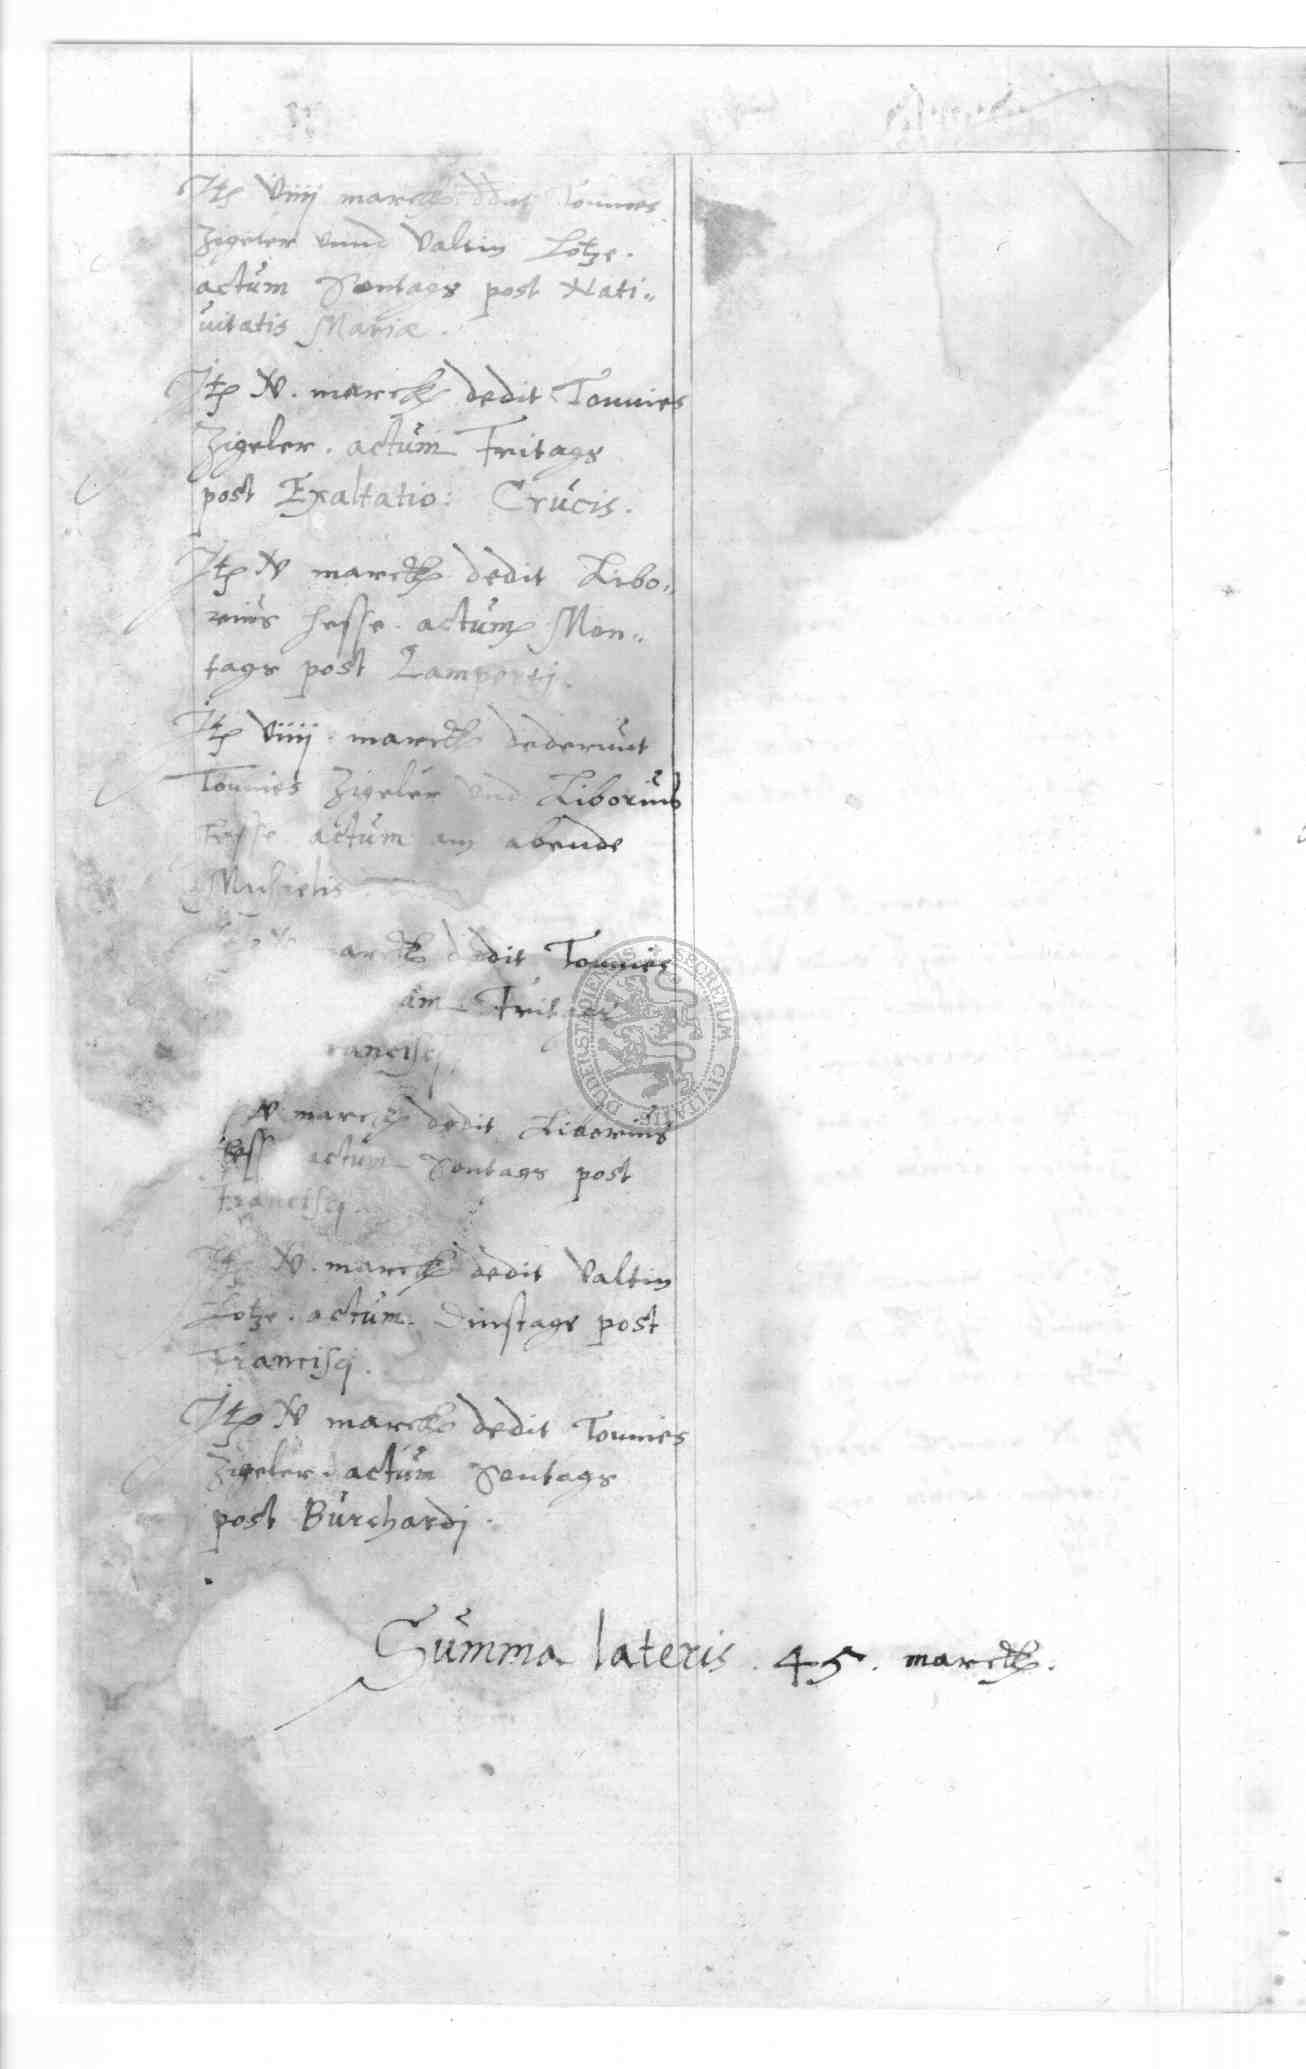 Jtē viiij marck dedit Tonnies
Zigeler vnnd Valtin Lotze.
actum Sontags post Nati„
uitatis Mariæ.
Jtē V. marck dedit Tonnies
Zigeler. actum Fritags
post Exaltatio: Crucis.
Jtē V marck dedit Libo„
rius Hesse. actum Mon„
tags post Lamperti.
Jtē viiij. marck dederunt
Tonnies Zigeler vnd Liborius
Hesse. actum am abende
Michaelis
marck dedit Tonnies
am Fritags
rancisci
V. marck dedit Liborius
Hesse actum Sontags post
Francisci.
Jtē V. marck dedit Valtin
Lotze. actum. Dinstags post
Francisci.
Jtē V marck dedit Tonnies
Zigeler. actum Sontags
post Burchardi.
Summa lateris. 45. marck.
SECRETUM CIVITATIS DUDERSTADIENSIS